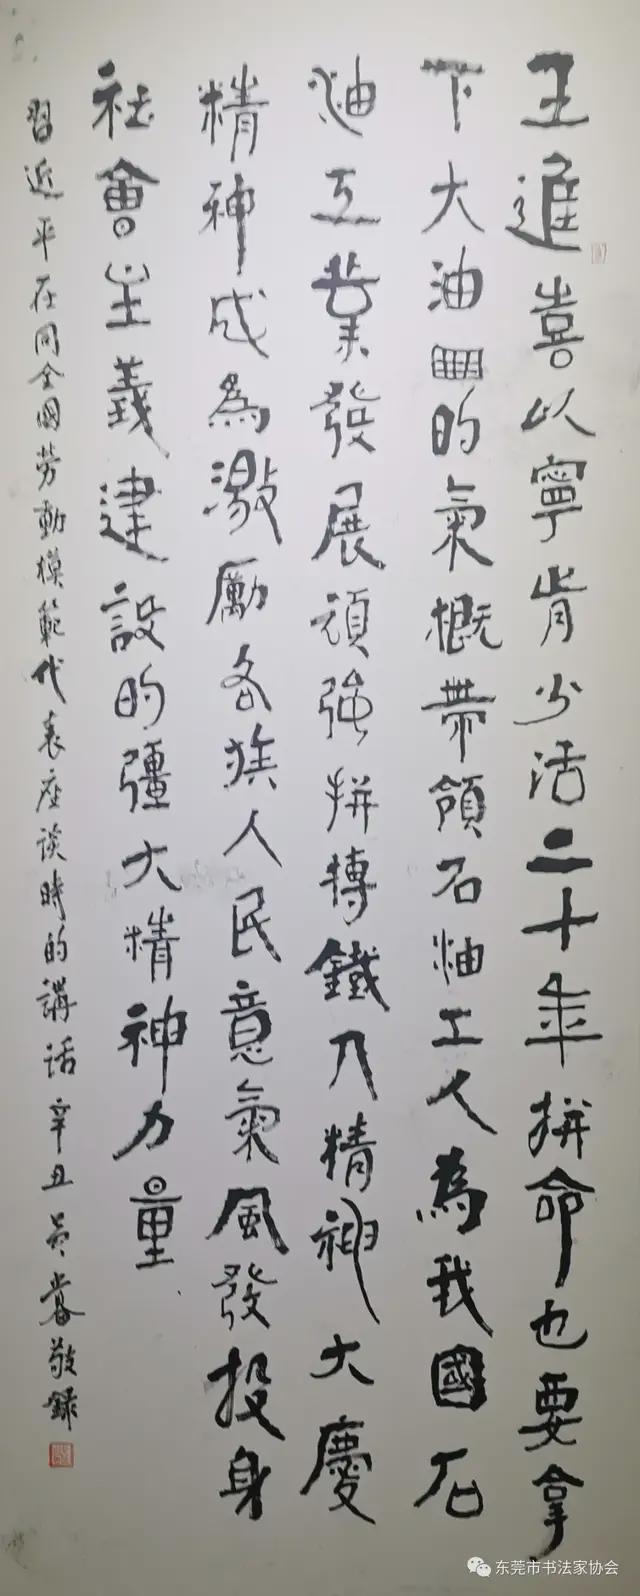 王進喜以寧肯少活二十年拼命也要拿
下大油田的氣概帶領石油工人為我國石
油工業發展頑強拼搏鐵人精神大慶
精神成為激勵各族人民意氣風發投身
社會主義建設的強大精神力量
習近平在同全國勞動模範代表座談時的講話 辛丑 敬錄
东莞市书法家协会